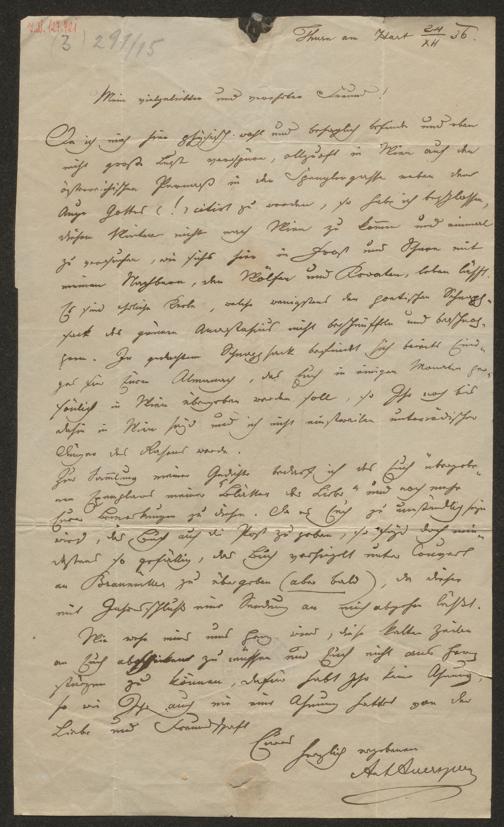 I.N. 127.921
(3) 291/15
Thurn am Hart 24/XII 36.
Mein vielgeliebter und verehrter Freund!
Da ich mich hier physisch wohl und behaglich befinde und eben
nicht große Lust verspüre, allzuoft in Wien auf den
österreichischen Parnaß in der Spenglergasse neben dem
Auge Gottes (!) citirt zu werden, so habe ich beschlossen,
diesen Winter nicht nach Wien zu kommen und einmal
zu versuchen, wie sichs hier in Frost und Schnee mit
meinen Nachbarn, den Wölfen und Kroaten, leben läßt.
Es sind ehrliche Kerle, welche wenigstens den poetischen Schnapp-
sack des grünen Anastasius nicht beschnüffeln und beschnap-
pern. In gedachtem Schnappsack befindet sich bereits Eini-
ges für Euren Almanach, das Euch in einigen Monaten per-
sönlich in Wien übergeben werden soll, so Ihr noch bis
dahin in Wien seyd und ich nicht einstweilen unterirdischer
Sänger des Rasens werde.
Zur Sammlung meiner Gedichte bedarf ich des Euch übergebe-
nen Exemplares meiner "Blätter der Liebe" und noch mehr
Eurer Bemerkungen zu diesen. Da es Euch zu umständlich seyn
wird, das Buch auf die Post zu geben, so seyd doch min-
destens so gefällig, das Buch versiegelt unter Couvert
an Braumüller zu übergeben (aber bald), da dieser
mit Jahresschluß eine Sendung an mich abgehen läßt.
Wie wehe mirs ums Herz wird, diese kalten Zeilen
an Euch zu müssen und Euch nicht ans Herz
stürzen zu können, dafür habt Ihr keine Ahnung,
so wie Ihr auch nie eine Ahnung hattet von der
Liebe und Freundschaft
Eures
herzlich ergebenen
Ant Auersperg